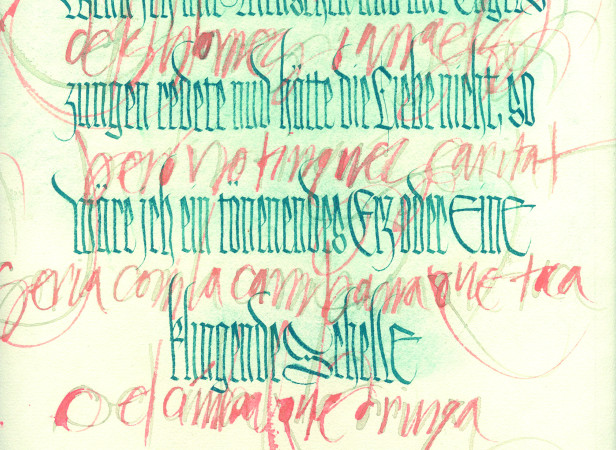 Wenn jch mit Menschen und mit Engels
dels homes i àngels
zungen redete und hätte die Liebe nicht, so
però no tingués caritat
wäre jch ein tönenendes Erz oder EinE
seria com la campana que toca
klingende Schelle
o el címbal que dringa